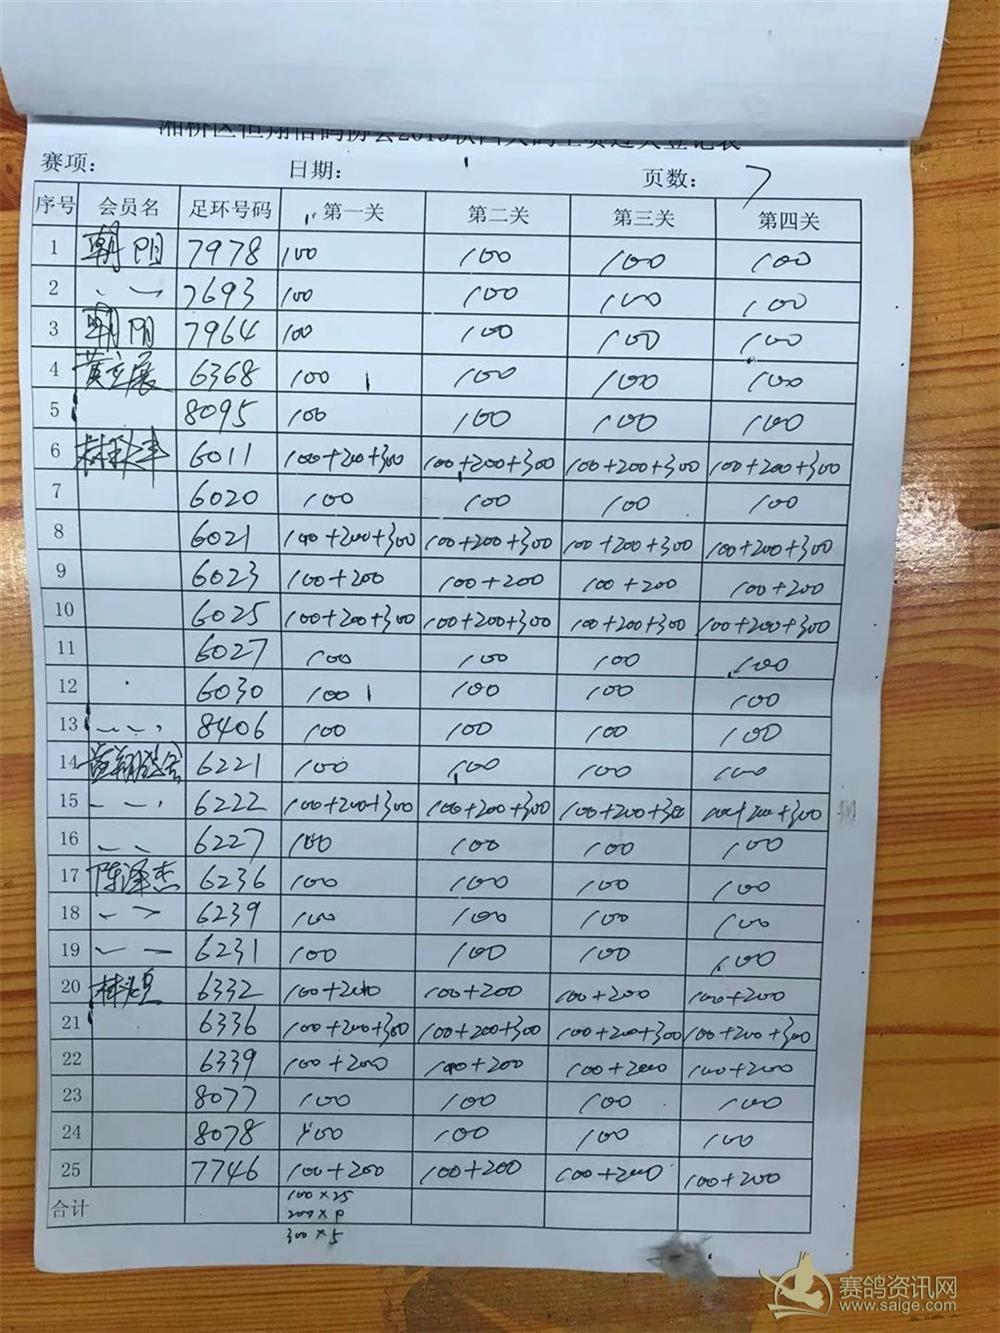 赛项： 日期： 页数： 7
序号 会员名 足环号码 第一关 第二关 第三关 第四关
1 朝阳 7978 100 100 100 100
2 〃 7693 100 100 100 100
3 朝阳 7964 100 100 100 100
4 黄立展 6368 100 100 100 100
5 8095 100 100 100 100
6 6011 100+200+300 100+200+300 100+200+300 100+200+300
7 6020 100 100 100 100
8 6021 100+200+300 100+200+300 100+200+300 100+200+300
9 6023 100+200 100+200 100+200 100+200
10 6025 100+200+300 100+200+300 100+200+300 100+200+300
11 6027 100 100 100 100
12 6030 100 100 100 100
13 〃 8406 100 100 100 100
14 6221 100 100 100 100
15 〃 6222 100+200+300 100+200+300 100+200+300 100+200+300
16 〃 6227 100 100 100 100
17 陈泽杰 6236 100 100 100 100
18 〃 6239 100 100 100 100
19 〃 6231 100 100 100 100
20 6332 100+200 100+200 100+200 100+200
21 6336 100+200+300 100+200+300 100+200+300 100+200+300
22 6339 100+200 100+200 100+200 100+200
23 8077 100 100 100 100
24 8078 100 100 100 100
25 7746 100+200 100+200 100+200 100+200
合计 100×25
200×9
300×5
赛鸽资讯网
www.saige.com